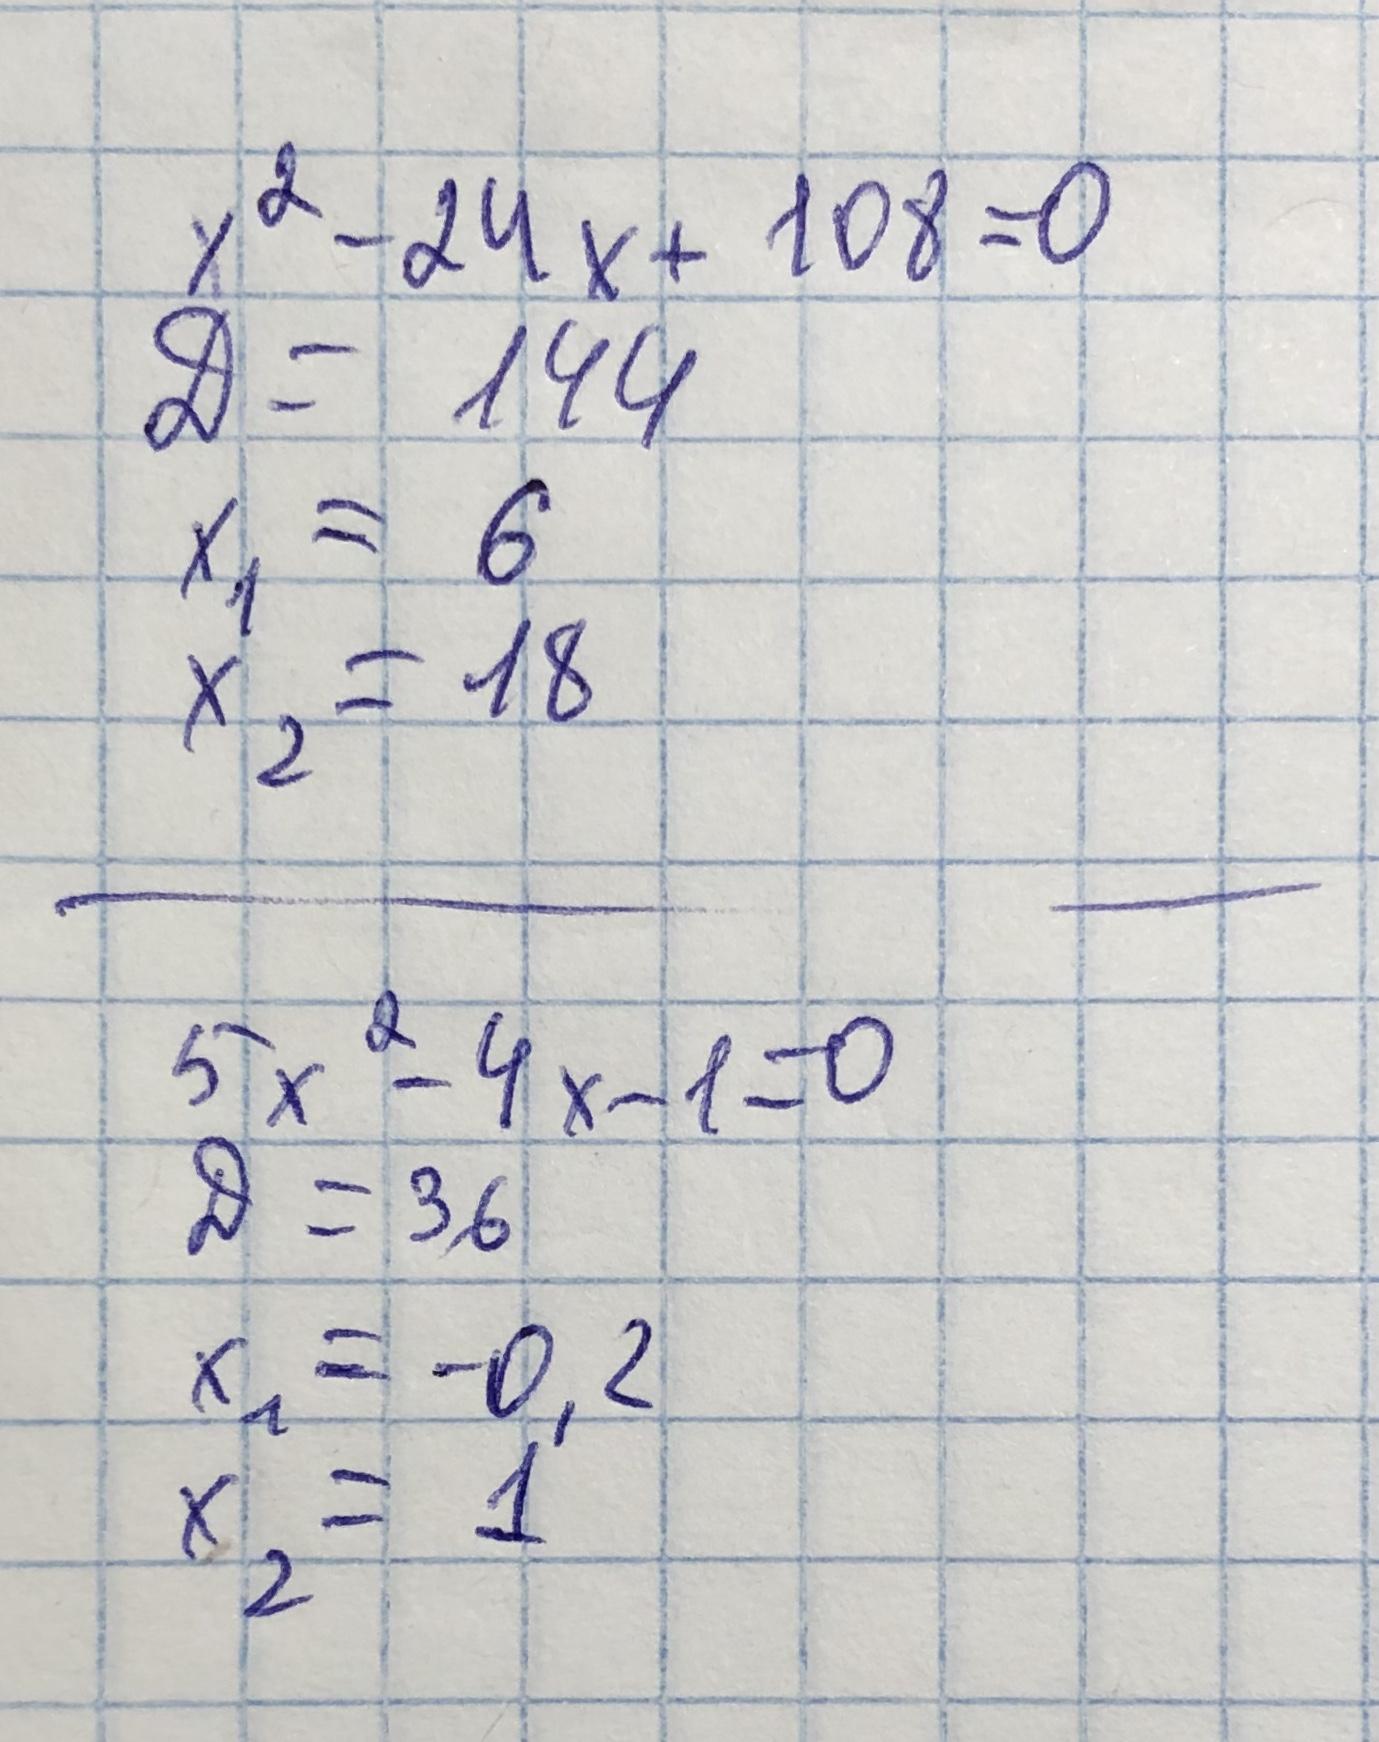 x² - 24x + 108 = 0
D = 144
x₁ = 6
x₂ = 18
5x² - 4x - 1 = 0
D = 36
x₁ = -0,2
x₂ = 1